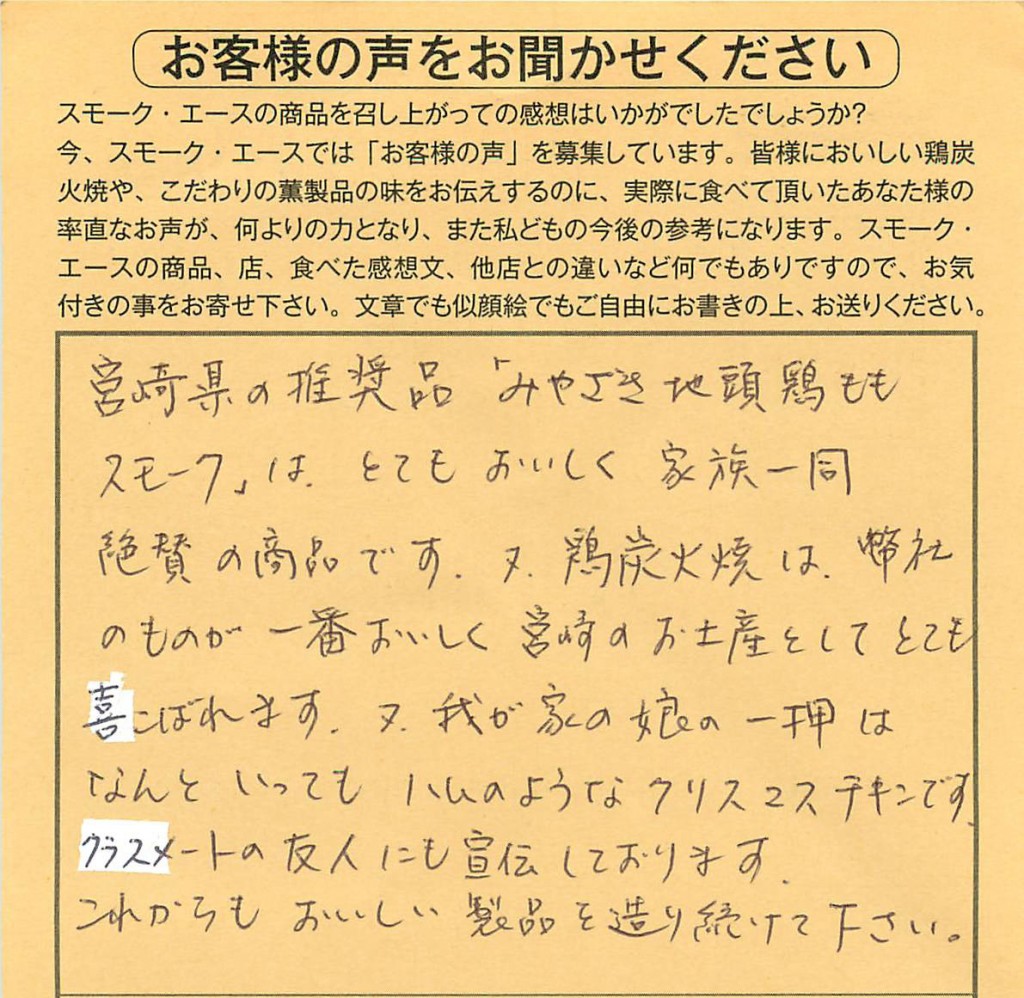 お客様の声をお聞かせください
スモーク・エースの商品を召し上がっての感想はいかがでしたでしょうか?
今、スモーク・エースでは「お客様の声」を募集しています。皆様においしい鶏炭
火焼や、こだわりの薫製品の味をお伝えするのに、実際に食べて頂いたあなた様の
率直なお声が、何よりの力となり、また私どもの今後の参考になります。スモーク・
エースの商品、店、食べた感想文、他店との違いなど何でもありですので、お気
付きの事をお寄せ下さい。文章でも似顔絵でもご自由にお書きの上、お送りください。
宮崎県の推奨品「みやざき地頭鶏もも
スモーク」は、とてもおいしく家族一同
絶賛の商品です。又、鶏炭火焼は、弊社
のものが一番おいしく宮崎のお土産としてとても
喜こばれます。又、我が家の娘の一押は
なんといってもハムのようなクリスマスチキンです。
クラスメートの友人にも宣伝しております。
これからもおいしい製品を造り続けて下さい。